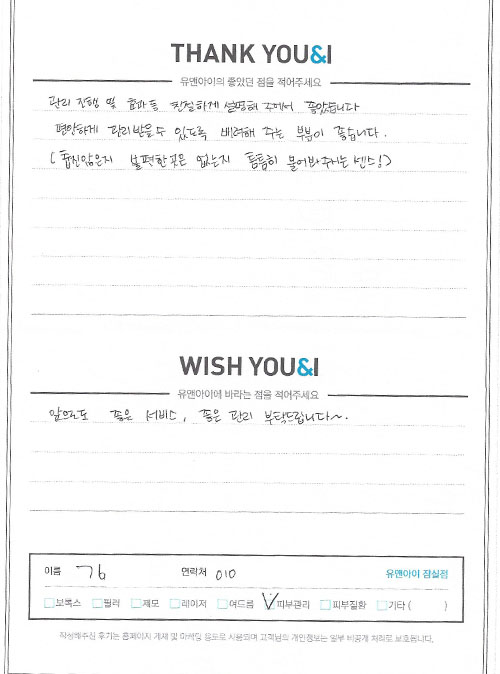 THANK YOU&I
유앤아이의 좋았던 점을 적어주세요
관리 진행 및 효과 등 친절하게 설명해 주셔서 좋았습니다
편안하게 관리받을 수 있도록 배려해 주는 부분이 좋습니다.
(춥진않은지 불편한 곳은 없는지 틈틈히 물어봐주시는 센스!)
WISH YOU&I
유앤아이에 바라는 점을 적어주세요
앞으로도 좋은 서비스, 좋은 관리 부탁드립니다~.
이름 연락처 010 유앤아이 잠실점
보톡스 필러 제모 레이저 여드름 V 피부관리 피부질환 기타 ( )
작성해주신 후기는 홈페이지 게재 및 마케팅 용도로 사용되며 고객님의 개인정보는 일부 비공개 처리로 보호됩니다.